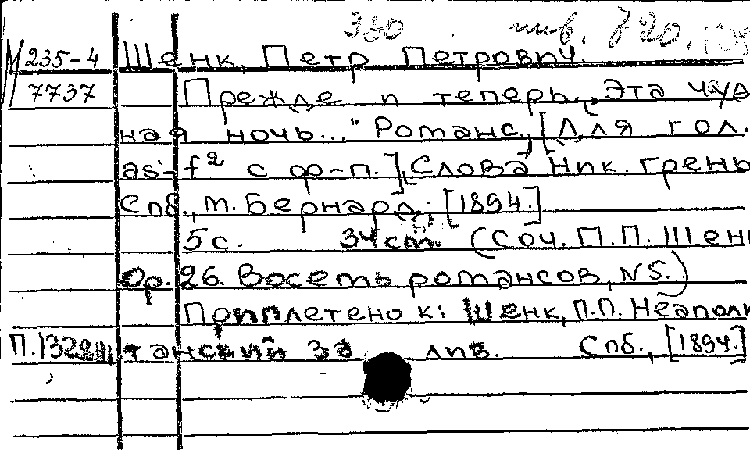 350 инв. 820.
М 235-4 Шенк, Петр Петрович.
7737 Прежде и теперь. „Эта чуд
ная ночь..." Романс, [Для гол.
as¹-f² с ф-п.], Слова Ник. Грень
Спб., М. Бернард, [1894.]
5 с. 34 cm. (Соч. П.П. Шен
Op. 26. Восемь романсов, N5.)
Приплетено к: Шенк, П.П. Неапол
П. танский за лив. Спб., [1894.]